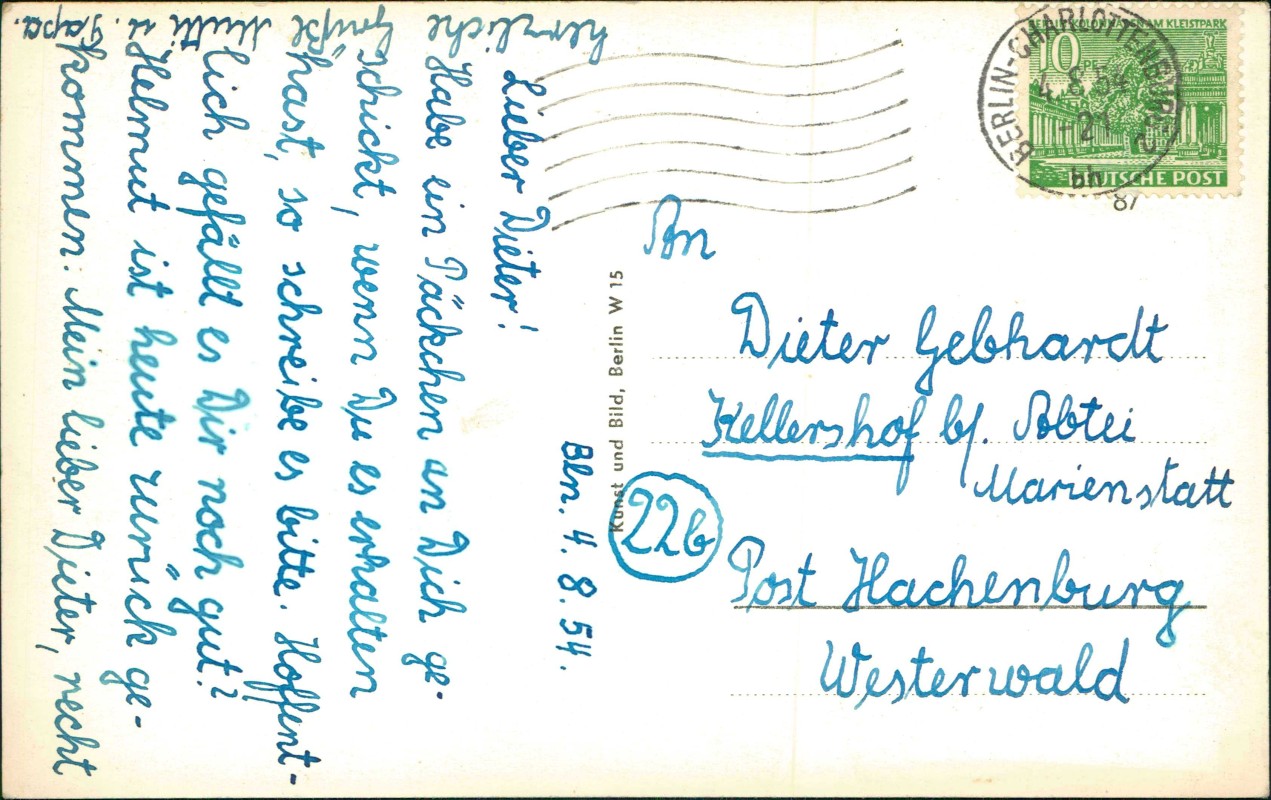 Bln. 4. 8. 54.
Lieber Dieter!
Habe ein Päckchen an Dich ge-
schickt, wenn Du es erhalten
hast, so schreibe es bitte. Hoffent-
lich gefällt es Dir noch gut?
Helmut ist heute zurück ge-
kommen. Mein lieber Dieter, recht
herzliche
Grüße
Mutti u.
Papa.
Kunst und Bild, Berlin W 15
BERLIN KOLONNADEN AM KLEISTPARK
10 PF
DEUTSCHE POST
BERLIN-CHARLOTTENBURG 2
4.8.54
-21
bh
An
Dieter Gebhardt
Kellershof b/. Abtei
Marienstatt
22b
Post Hachenburg
Westerwald